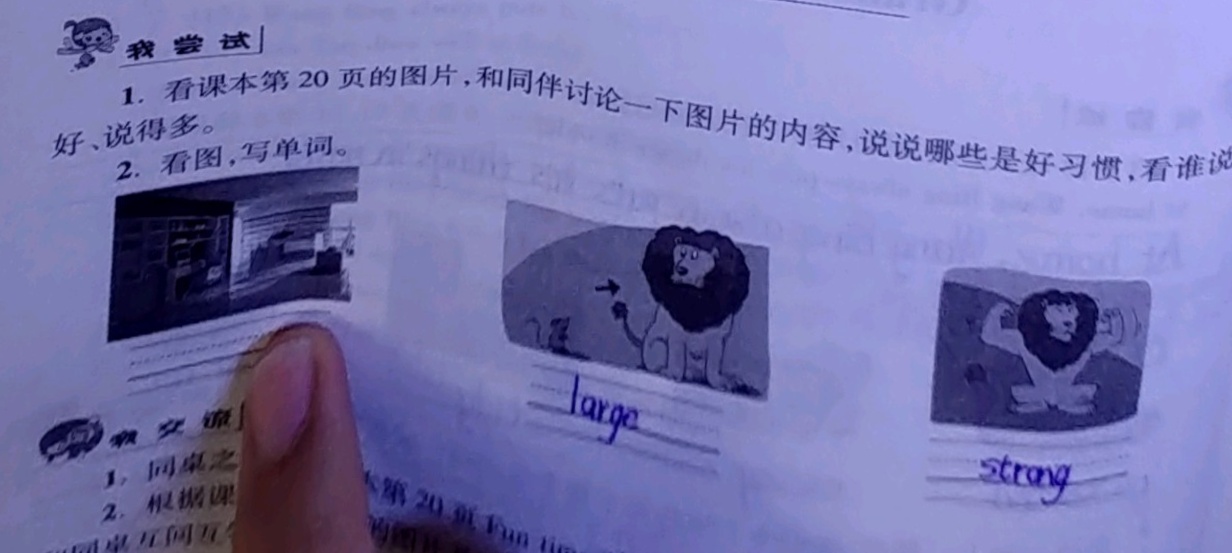 我尝试
1. 看课本第 20 页的图片,和同伴讨论一下图片的内容,说说哪些是好习惯,看谁说
好、说得多。
2. 看图,写单词。
large
strong
我交流
1. 同桌之
2. 根据课 本第 20 页 Fun time
同桌互问互 的图